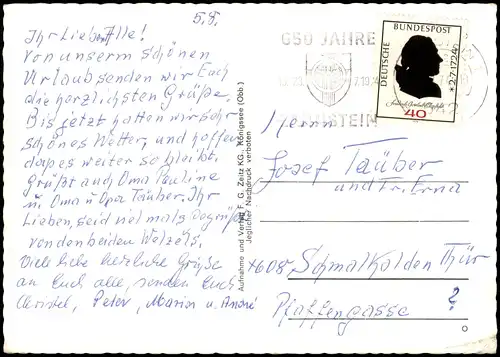 5.8.
Ihr Lieben Alle!
Von unserm schönen
Urlaub senden wir Euch
die herzlichsten Grüße.
Bis jetzt hatten wir sehr
schönes Wetter, und hoffen
daß es weiter so bleibt.
Grüßt auch Oma Pauline
u. Oma u. Opa Täuber. Ihr
Lieben, seid vielmals gegrüßt
von den beiden Welzels.
Viele liebe herzliche Grüße
an Euch alle, senden Euch
Christel, Peter, Marion u. André
Aufnahme und Verlag F. G. Zeitz KG., Königssee (Obb.)
Jeglicher Nachdruck verboten
650 JAHRE
DEUTSCHE BUNDESPOST
* 2·7·1724
40
Herrn
Josef Täuber
und Fr. Erna
X608 Schmalkalden Thür
Pfaffengasse ?